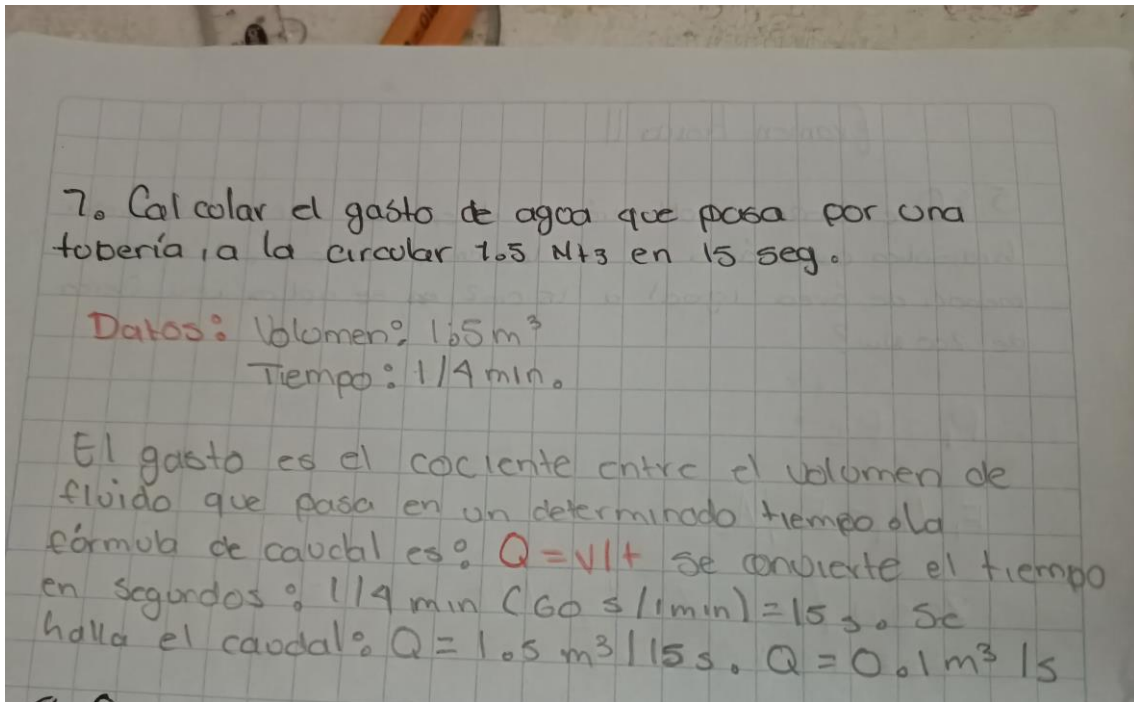 7. Calcular el gasto de agua que pasa por una
tubería, a la circular 1.5 Mt3 en 15 seg.
Datos: Volumen: 1.5 m³
Tiempo: 1/4 min.
El gasto es el cociente entre el volumen de
fluido que pasa en un determinado tiempo. la
fórmula de caudal es: Q = V/t se convierte el tiempo
en segundos: 1/4 min (60 s/1min) = 15 s. Se
halla el caudal: Q = 1.5 m³/15 s. Q = 0.1 m³/s